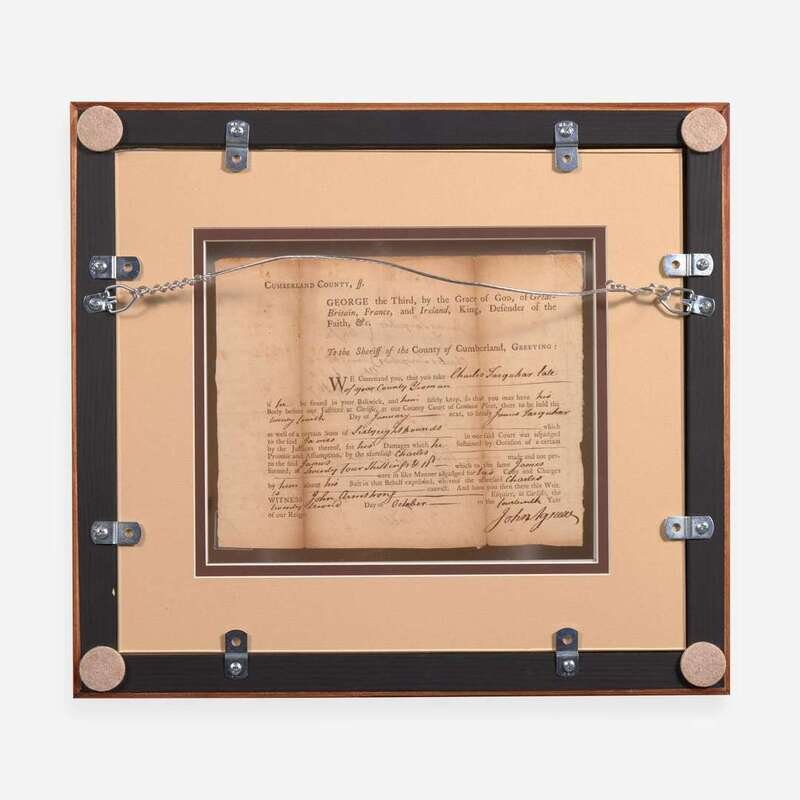 CUMBERLAND COUNTY, ss.
GEORGE the Third, by the Grace of GOD, of Great-
Britain, France, and Ireland, King, Defender of the
Faith, &c.
To the Sheriff of the County of Cumberland, GREETING:
WE Command you, that you take Charles Farquhar late
of your County Yeoman
if he be found in your Bailiwick, and him safely keep, so that you may have his
Body before our Justices at Carlisle, at our County Court of Common Pleas, there to be held the
twenty fourth Day of January next, to satisfy James Farquhar
as well of a certain Sum of Sixty eight pounds which
to the said James in our said Court was adjudged
by the Justices thereof, for his Damages which he Sustained by Occasion of a certain
Promise and Assumption, by the aforesaid Charles
to the said James made and not per-
formed; as Seventy four Shillings & which to the same James
were in like Manner adjudged for his Costs and Charges
by him about his Suit in that Behalf expended, whereof the aforesaid Charles
is convict. And have you then there this Writ.
WITNESS John Armstrong Esquire, at Carlisle, the
twenty Second Day of October in the fourteenth Year
of our Reign.
John Agnew